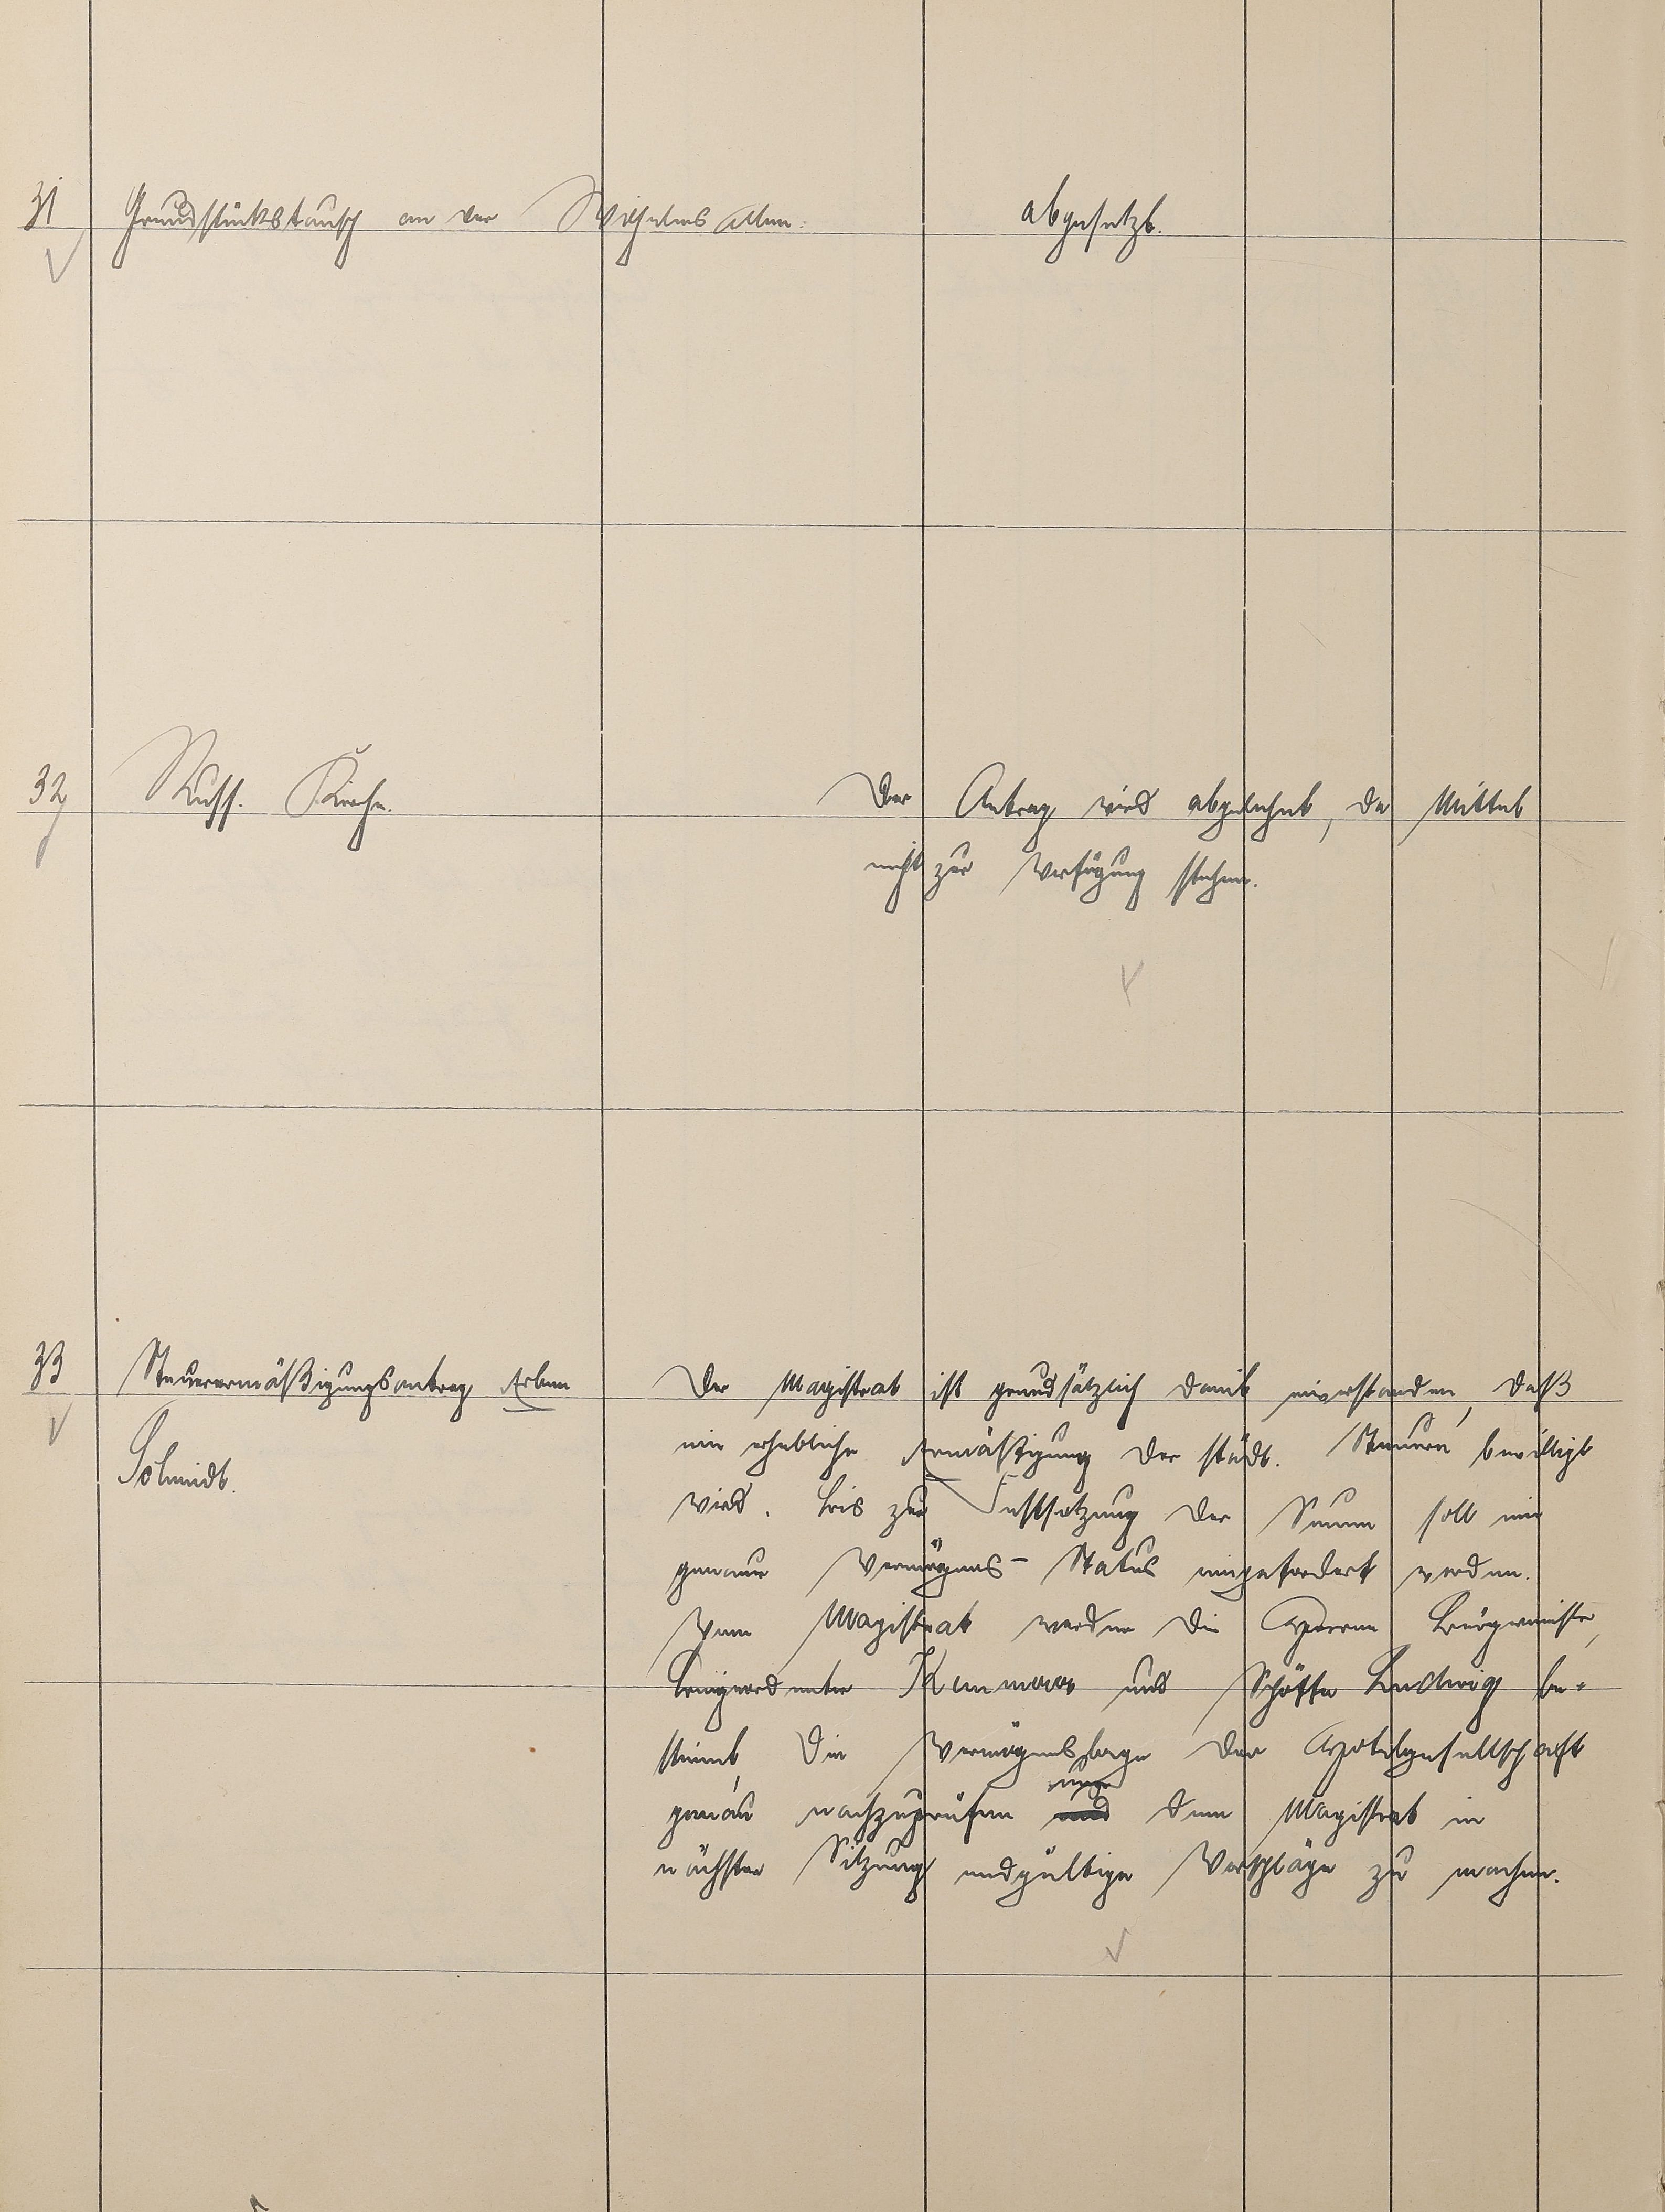 31 Grundstückstausch an der Wilhelms Allee. abgesetzt.
32 Russ. Kirche. Der Antrag wird abgelehnt, da Mittel
nicht zur Verfügung stehen.
33 Steuerermäßigungsantrag Erben Der Magistrat ist grundsätzlich damit einverstanden, daß
eine erhebliche Ermäßigung der städt. Steuern bewilligt
Schmidt.
wird. Bis zur Festsetzung der Summe soll ein
genauer Vermögens-Status eingefordert werden.
Vom Magistrat werden die Herren Bürgermeister,
Beigeordneter und Schöffe Ludwig be-
stimmt, die Vermögenslage der Hotelgesellschaft
genau nachzuprüfen und dem Magistrat in
nächster Sitzung endgültige Vorschläge zu machen.